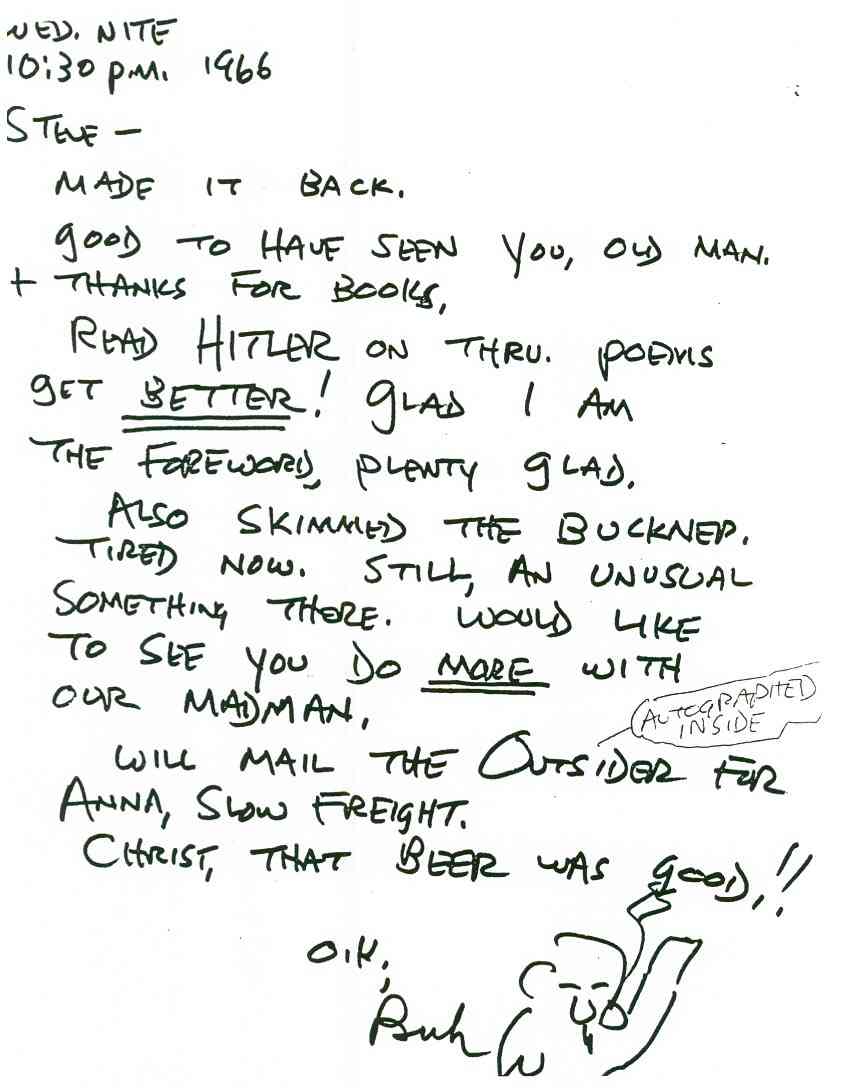 WED. NITE
10:30 p.m. 1966
STEVE —
MADE IT BACK.
GOOD TO HAVE SEEN YOU, OLD MAN.
+ THANKS FOR BOOKS,
READ HITLER ON THRU. POEMS
GET BETTER! GLAD I AM
THE FOREWORD, PLENTY GLAD.
ALSO SKIMMED THE BUCKNER.
TIRED NOW. STILL, AN UNUSUAL
SOMETHING THERE. WOULD LIKE
TO SEE YOU DO MORE WITH
OUR MADMAN.
AUTOGRAPHTED
INSIDE
WILL MAIL THE OUTSIDER FOR
ANNA, SLOW FREIGHT.
CHRIST, THAT BEER WAS GOOD,!!
O.K,
Buk